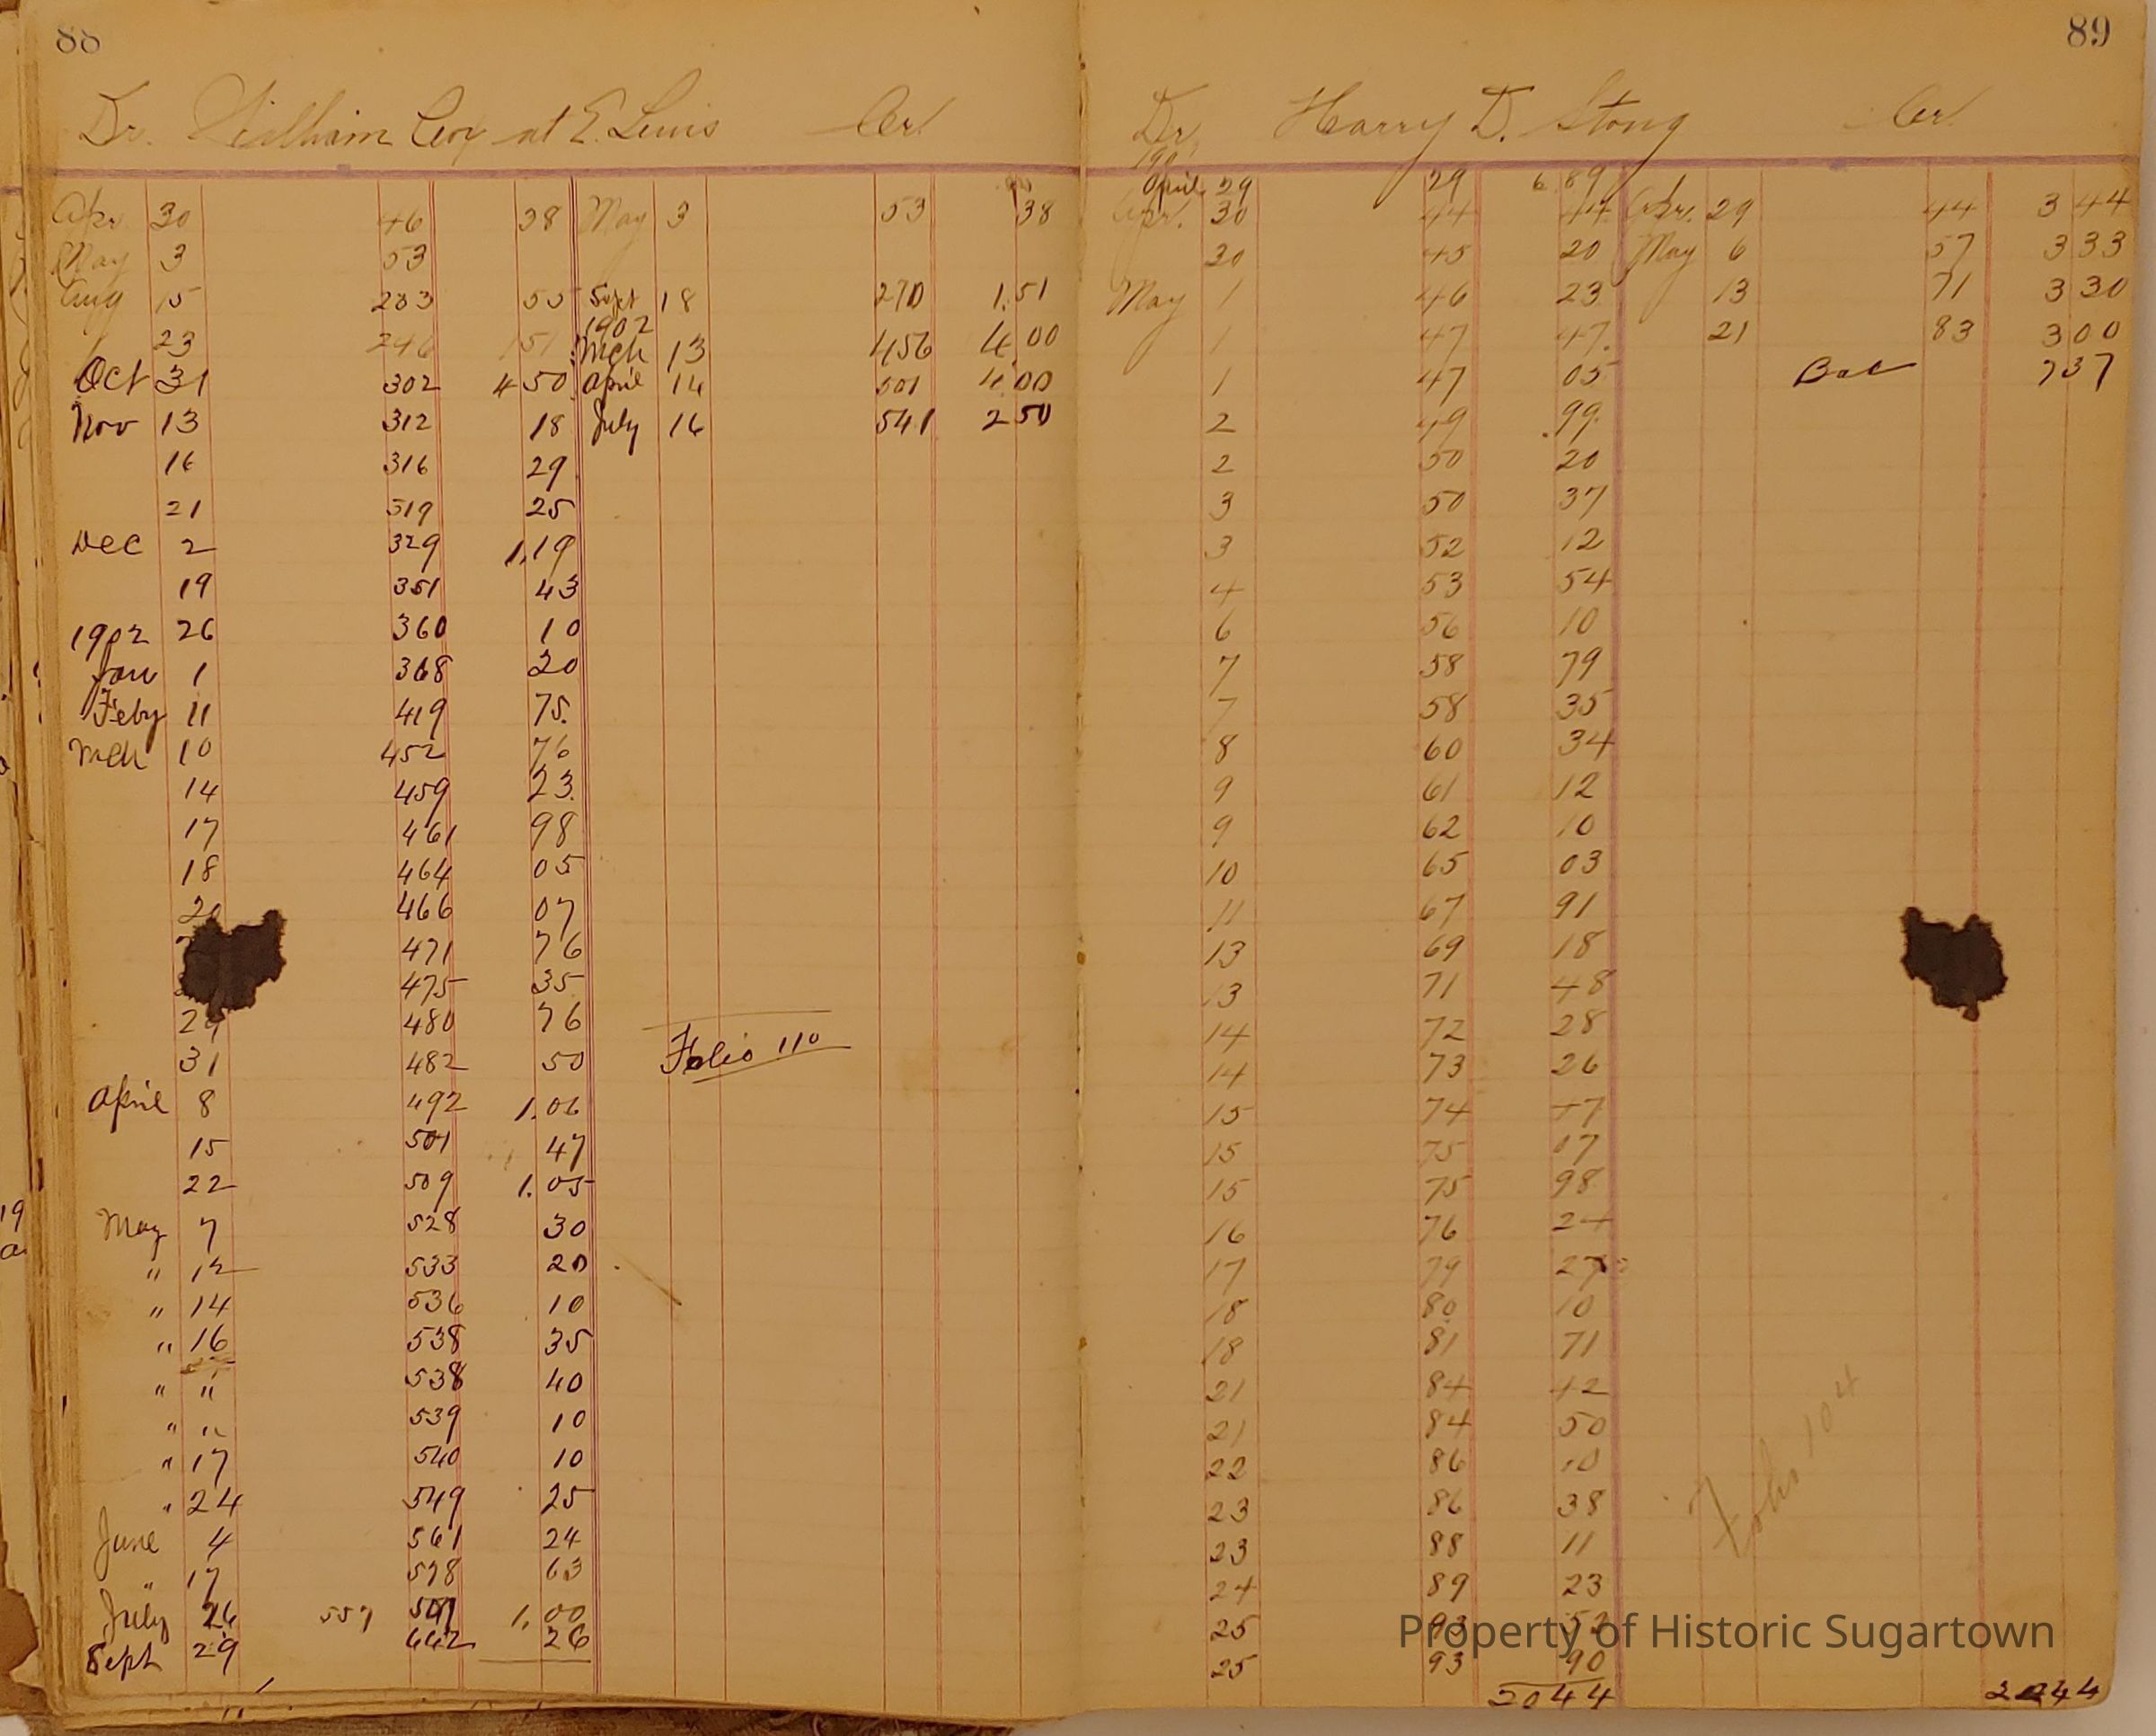 88
Dr. William Cox at E. Lewis Cr
Apr. 30 46 38 May 3 53 38
May 3 53
Aug 15 233 55 Sept 18 270 1.51
23 246 1 51 1902 Mch 13 456 4.00
Oct 31 302 4 50 April 14 501 4.00
Nov 13 312 18 July 16 541 2 50
16 316 29
21 319 25
Dec 2 329 1.19
19 351 43
1902 26 360 10
Jan 1 368 20
Feby 11 419 75.
Mch 10 452 76
14 459 23.
17 461 98
18 464 05
20 466 07
471 76
475 35
29 480 76
31 482 50 Folio 110
April 8 492 1.06
15 501 47
22 509 1.05
May 7 528 30
" 12 533 20
" 14 536 10
" 16 538 35
" " 538 40
" " 539 10
" 17 540 10
" 24 549 25
June 4 561 24
" 17 578 63
July 26 557 1.00
Sept 29 442 26
89
Dr. Harry D. Stong Cr
190
April 29 29 6.89
Apr. 30 44 44 Apr. 29 44 3 44
30 45 20 May 6 57 3 33
May 1 46 23 13 71 3 30
1 47 47. 21 83 3 00
1 47 05 Bal 7 37
2 49 .99.
2 50 20
3 50 37
3 52 12
4 53 54
6 56 10
7 58 79
7 58 35
8 60 34
9 61 12
9 62 10
10 65 03
11 67 91
13 69 18
13 71 48
14 72 28
14 73 26
15 74 47
15 75 07
15 75 98
16 76 24
17 79 27
18 80 10
18 81 71
21 84 42
21 84 50
22 86 10
23 86 38
23 88 11
24 89 23
25 93 52
25 93 90
20 44 20 44
Folio 104
Property of Historic Sugartown